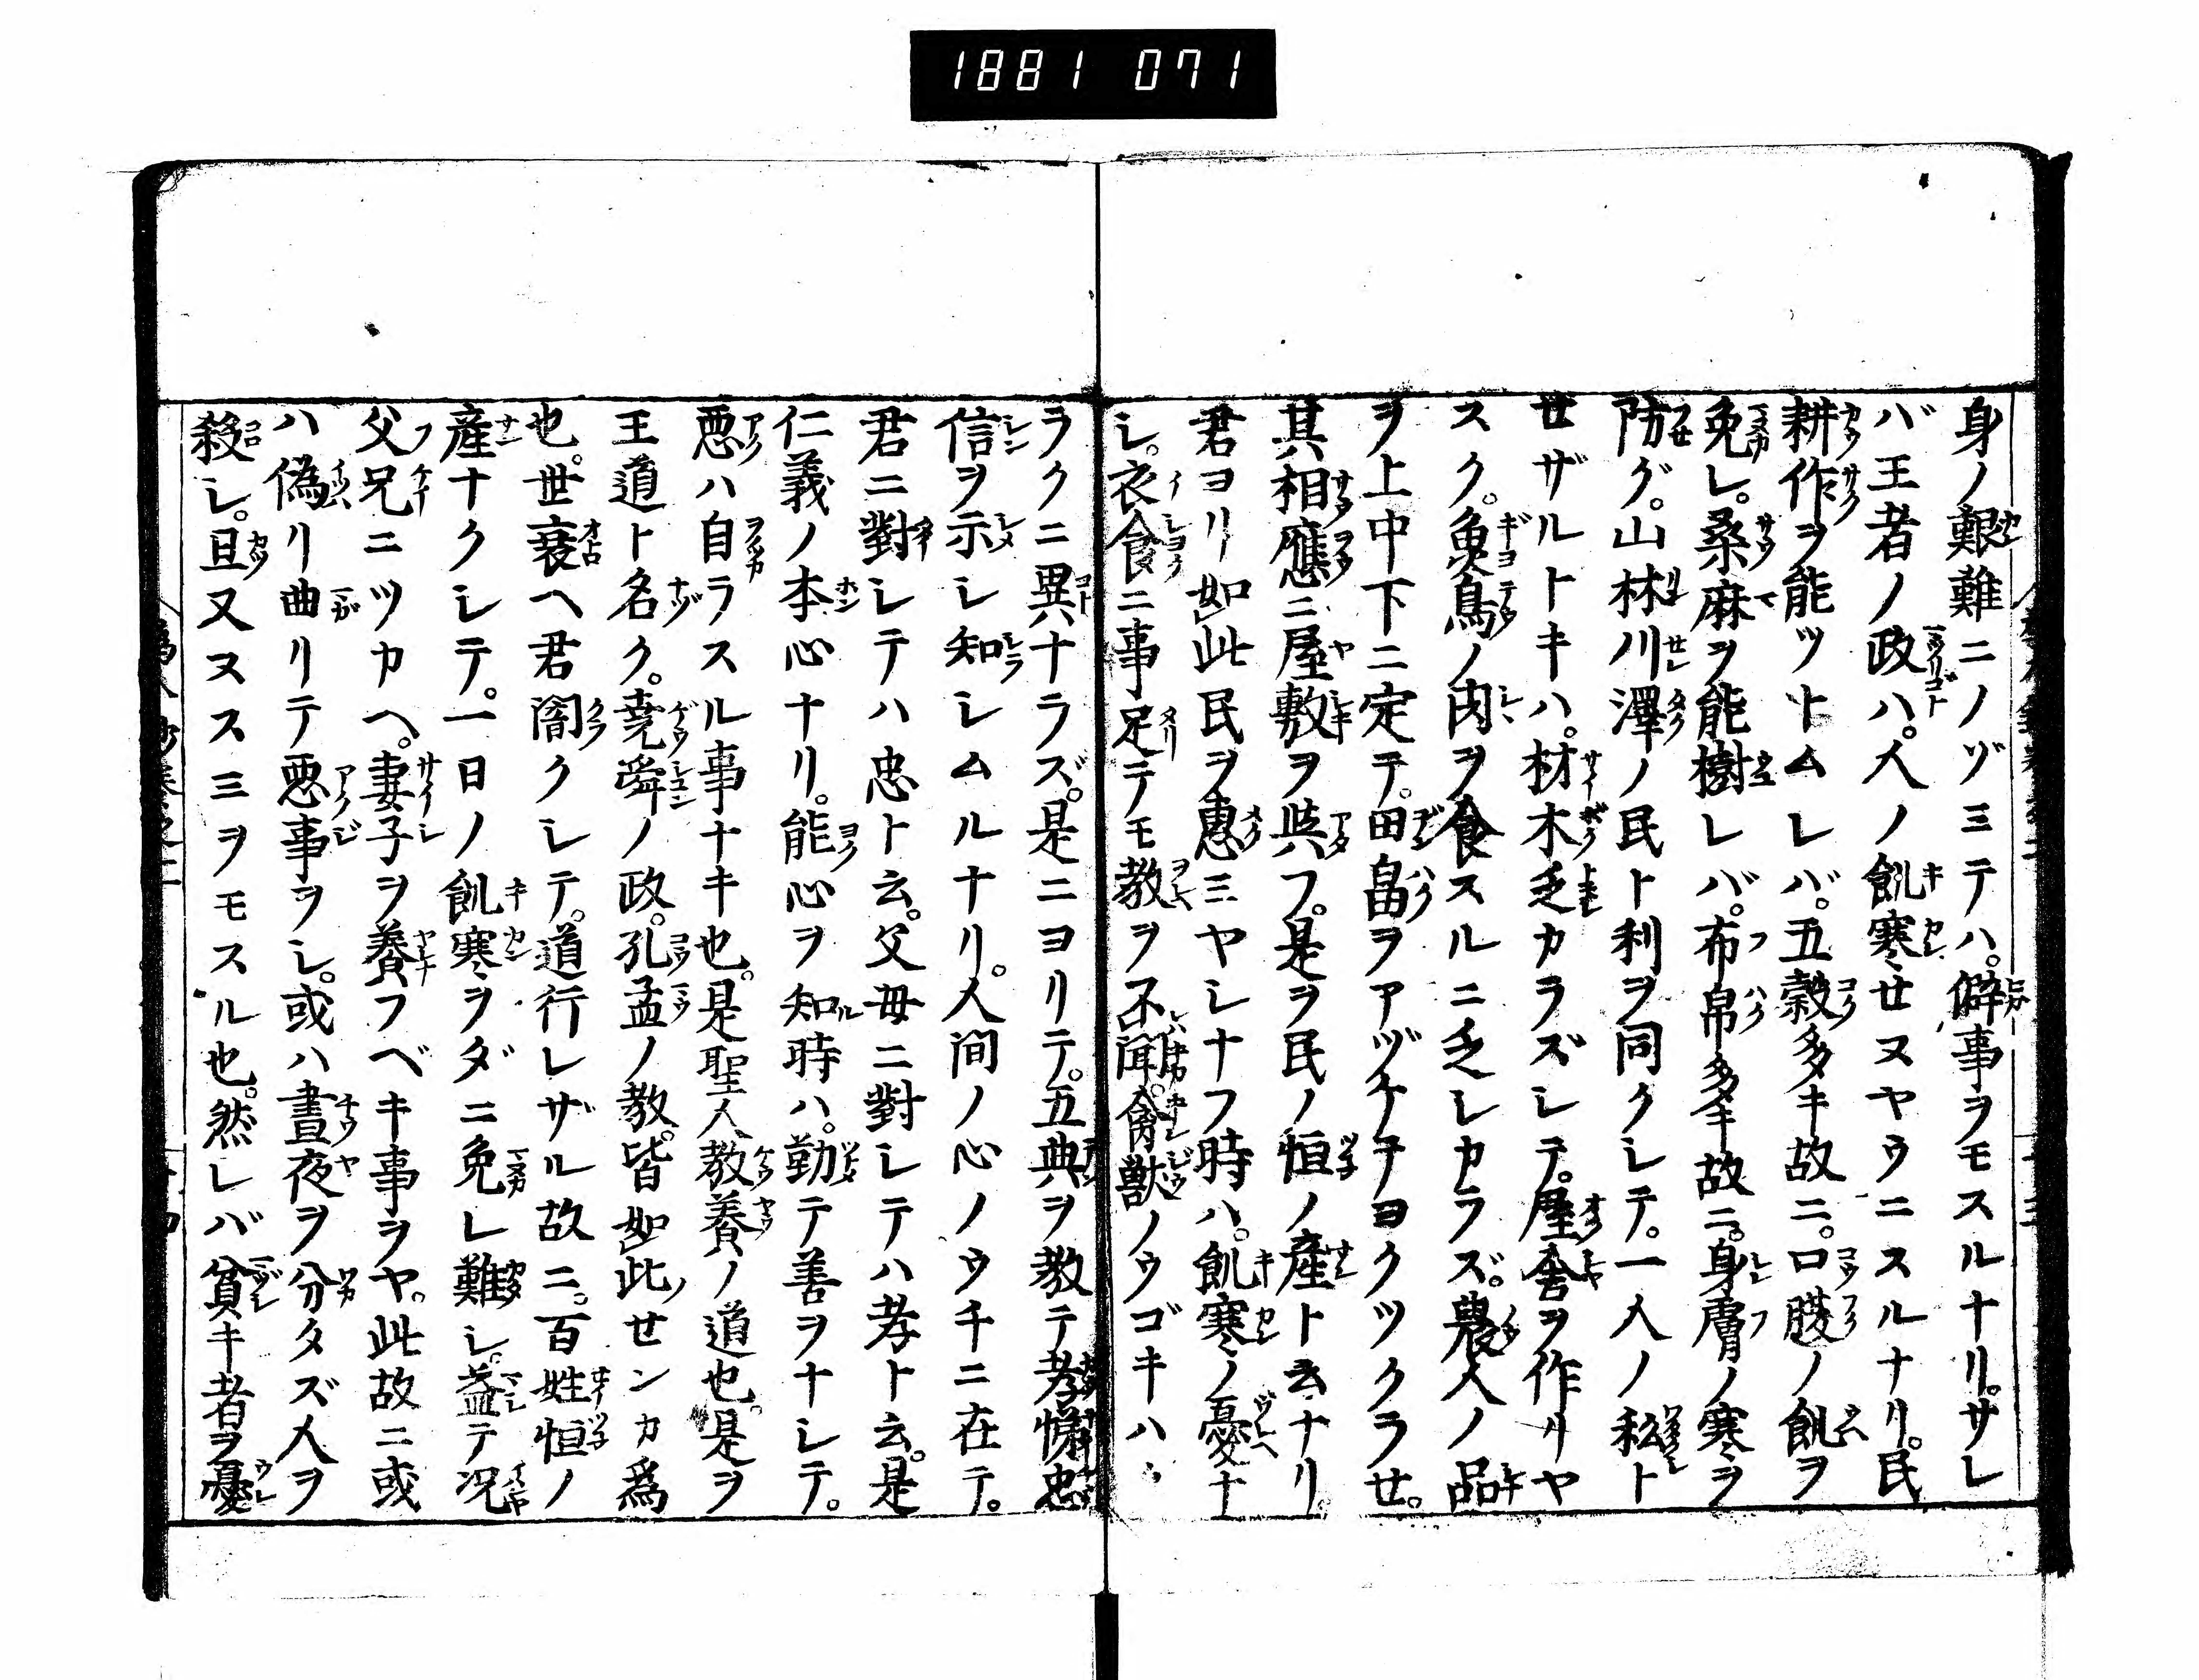 1881 071
身ノ艱難ニノヅミテハ。僻事ヲモスルナリ。サレ
バ王者ノ政ハ。人ノ飢寒セヌヤウニスルナリ。民
耕作ヲ能ツトムレバ。五穀多キ故ニ。口腹ノ飢ヲ
免レ。桑麻ヲ能樹レバ。布帛多キ故ニ。身膚ノ寒ヲ
防グ。山林川澤ノ民ト利ヲ同クシテ。一人ノ私ト
セザルトキハ。材木乏カラズシテ。屋舎ヲ作リヤ
スク。魚鳥ノ肉ヲ食スルニ乏シカラズ。農人ノ品
ヲ上中下ニ定テ。田畠ヲアヅケテヨクツクラセ。
其相應ニ屋敷ヲ與フ。是ヲ民ノ恒ノ産ト云ナリ。
君ヨリ如此民ヲ惠ミヤシナフ時ハ。飢寒ノ憂ナ
シ。衣食ニ事足テモ教ヲ不聞。禽獣ノウゴキハ
ラクニ異ナラズ。是ニヨリテ。五典ヲ教テ孝悌忠
信ヲ示シ知シムルナリ。人間ノ心ノウチニ在テ。
君ニ對シテハ忠ト云。父母ニ對シテハ孝ト云。是
仁義ノ本心ナリ。能心ヲ知時ハ。勤テ善ヲナシテ。
悪ハ自ラスル事ナキ也。是聖人教養ノ道也。是ヲ
王道ト名ク。堯舜ノ政。孔孟ノ教。皆如此ノせンカ為
也。世衰ヘ君闇クシテ。道行レザル故ニ。百姓恒ノ
産ナクシテ。一日ノ飢寒ヲダニ免レ難シ。益テ况
父兄ニツカヘ。妻子ヲ養フベキ事ヲヤ。此故ニ或
ハ偽リ曲リテ悪事ヲシ。或ハ晝夜ヲ分タズ人ヲ
殺シ。且又ヌスミヲモスル也。然レバ貧キ者ヲ憂